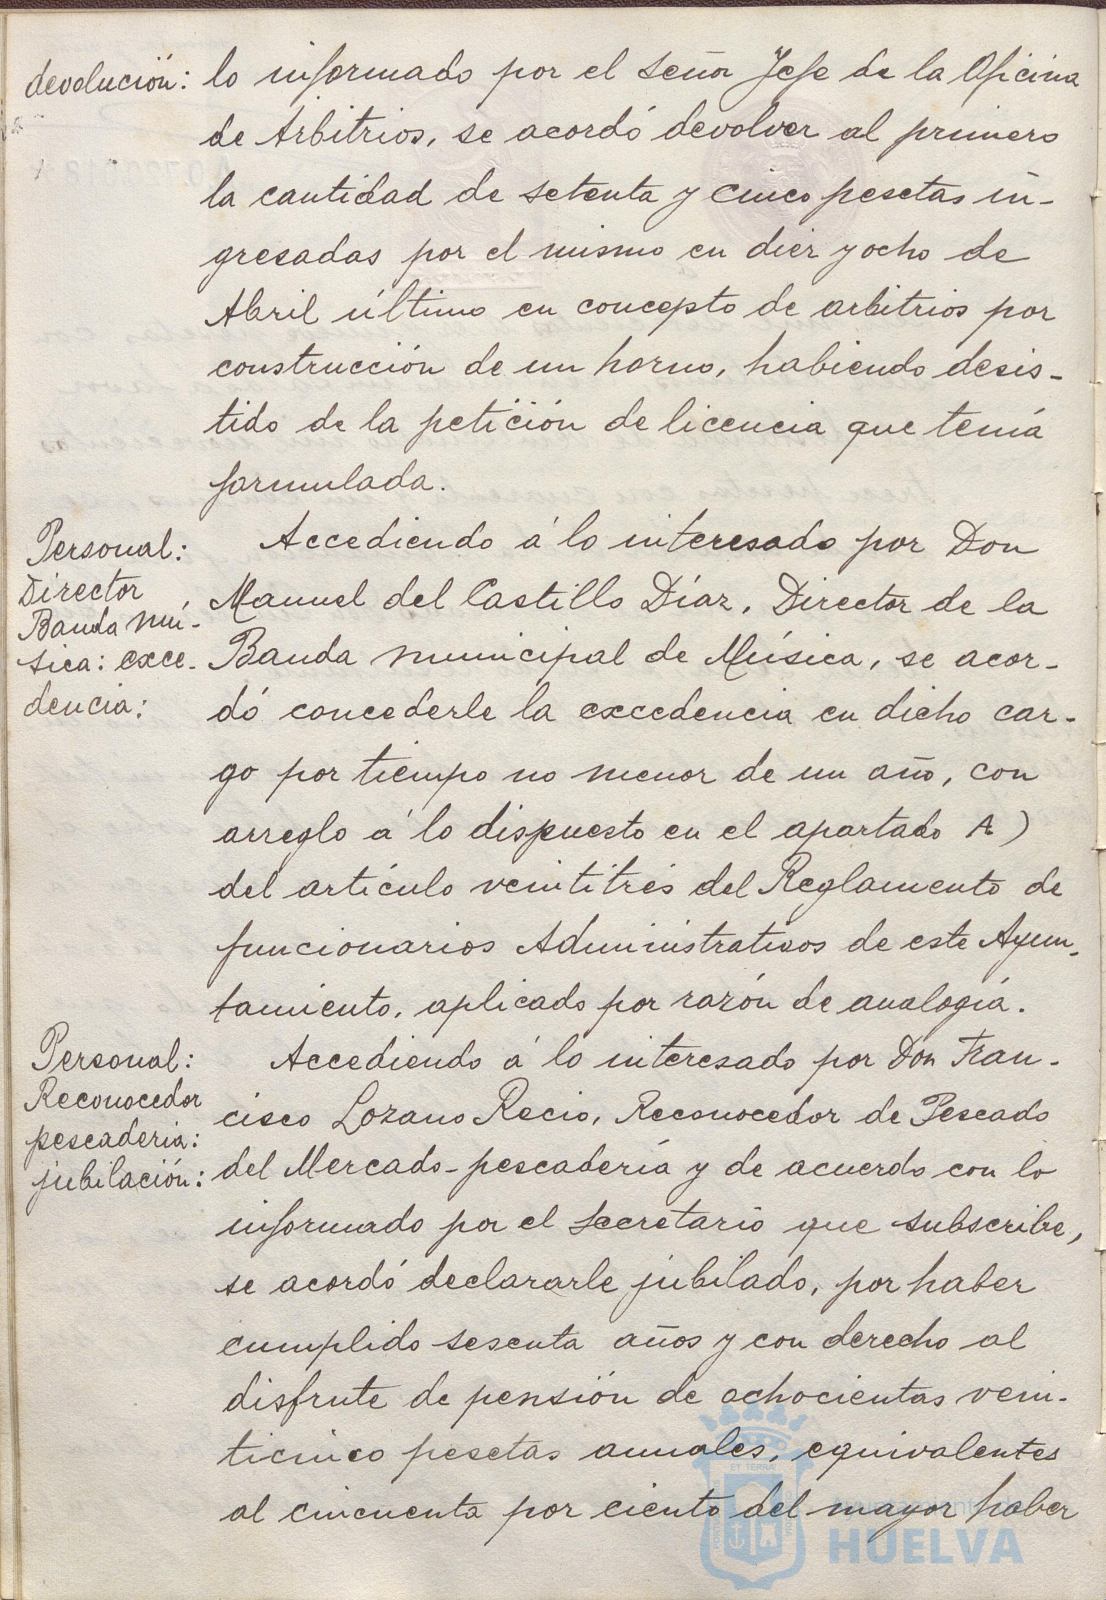 devolución:
lo informado por el señor Jefe de la Oficina
de Arbitrios, se acordó devolver al primero
la cantidad de setenta y cinco pesetas in-
gresadas por el mismo en diez y ocho de
Abril último en concepto de arbitrios por
construcción de un horno, habiendo desis-
tido de la petición de licencia que tenía
formulada.
Personal:
Director
Banda Mú-
sica: exce-
dencia:
Accediendo á lo interesado por Don
Manuel del Castillo Díaz, Director de la
Banda municipal de Música, se acor-
dó concederle la excedencia en dicho car-
go por tiempo no menor de un año, con
arreglo á lo dispuesto en el apartado A)
del artículo veintitrés del Reglamento de
funcionarios Administrativos de este Ayun-
tamiento, aplicado por razón de analogía.
Personal:
Reconocedor
pescadería:
jubilación:
Accediendo á lo interesado por Don Fran-
cisco Lozano Recio, Reconocedor de Pescado
del Mercado-pescadería y de acuerdo con lo
informado por el Secretario que subscribe,
se acordó declararle jubilado, por haber
cumplido sesenta años y con derecho al
disfrute de pensión de ochocientas vein-
ticinco pesetas anuales, equivalentes
al cincuenta por ciento del mayor haber
HUELVA